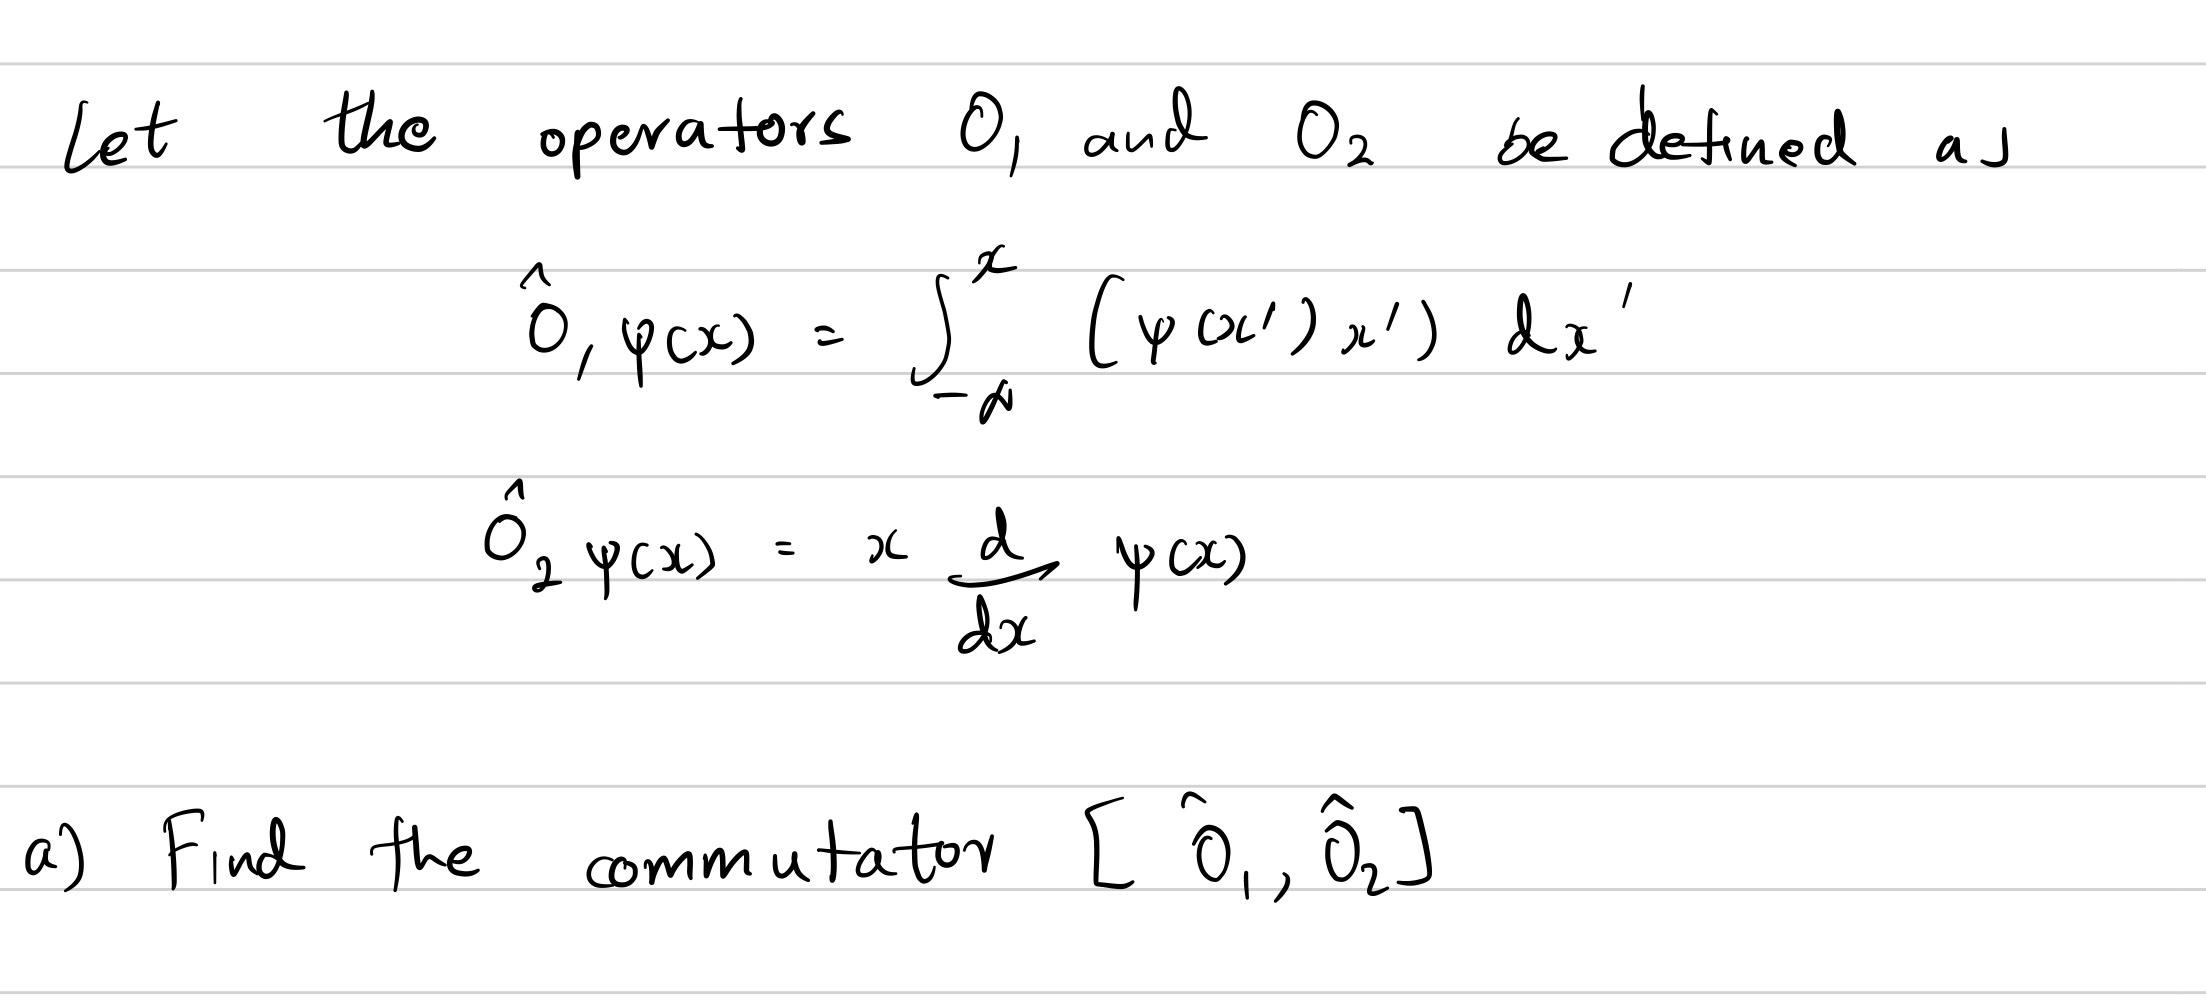 Let the operators O₁ and O₂ be defined as
Ô₁ ψ(x) = ∫_{-∞}^{x} (ψ(x')x') dx'
Ô₂ ψ(x) = x d/dx ψ(x)
a) Find the commutator [Ô₁, Ô₂]